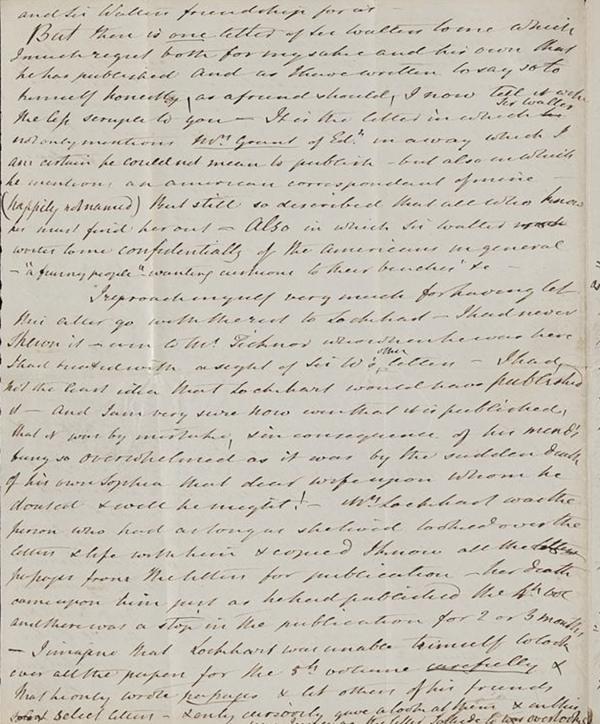 and Sir Walters friendship for us -
But there is one letter of Sir Walters to me which
I much regret both for my sake and his own that
he has published and as I have written to say so to
himself honestly, as a friend should, I now tell it with
the less scruple to you - It is the letter in which Sir Walter
not only mentions Mrs Grant of Edn in a way which I
am certain he could not mean to publish - but also in which
he mentions an american correspondent of mine -
(happily not named) But still so described that all who know
her must find her out - Also in which Sir Walter
writes to me confidentially of the Americans in general
- "a funny people" - wanting cushions to their benches &c -
I reproach myself very much for having let
this letter go with the rest to Lockhart - I had never
shewn it - even to Mr Ticknor who when he was here
I had treated with a sight of Sir W's other letters - I had
not the least idea that Lockhart would have published
it - And I am very sure now even that it is published,
that it was by mistake, & in consequence of his mend's
being so overwhelmed as it was by the sudden death
of his own Sophia that dear wife upon whom he
doated & well he might! - Mrs Lockhart was the
person who had as long as she lived looked over the
letters & life with him & copied I know all the
passages from the letters for publication - her death
came upon him just as he had published the 4th vol
and there was a stop in the publication for 2 or 3 months
- I imagine that Lockhart was unable himself to look
over all the papers for the 5th volume carefully &
that he only wrote passages & let others of his friends
select letters - & only cursorily gave a look at them & in this